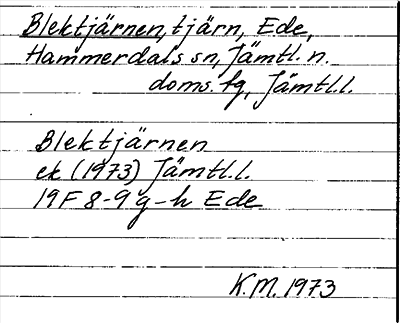 Blektjärnen, tjärn, Ede,
Hammerdals sn, Jämtl. n.
doms. tg, Jämtl.l.
Blektjärnen
ek (1973) Jämtl.l.
19F 8-9 g-h Ede
K.M. 1973